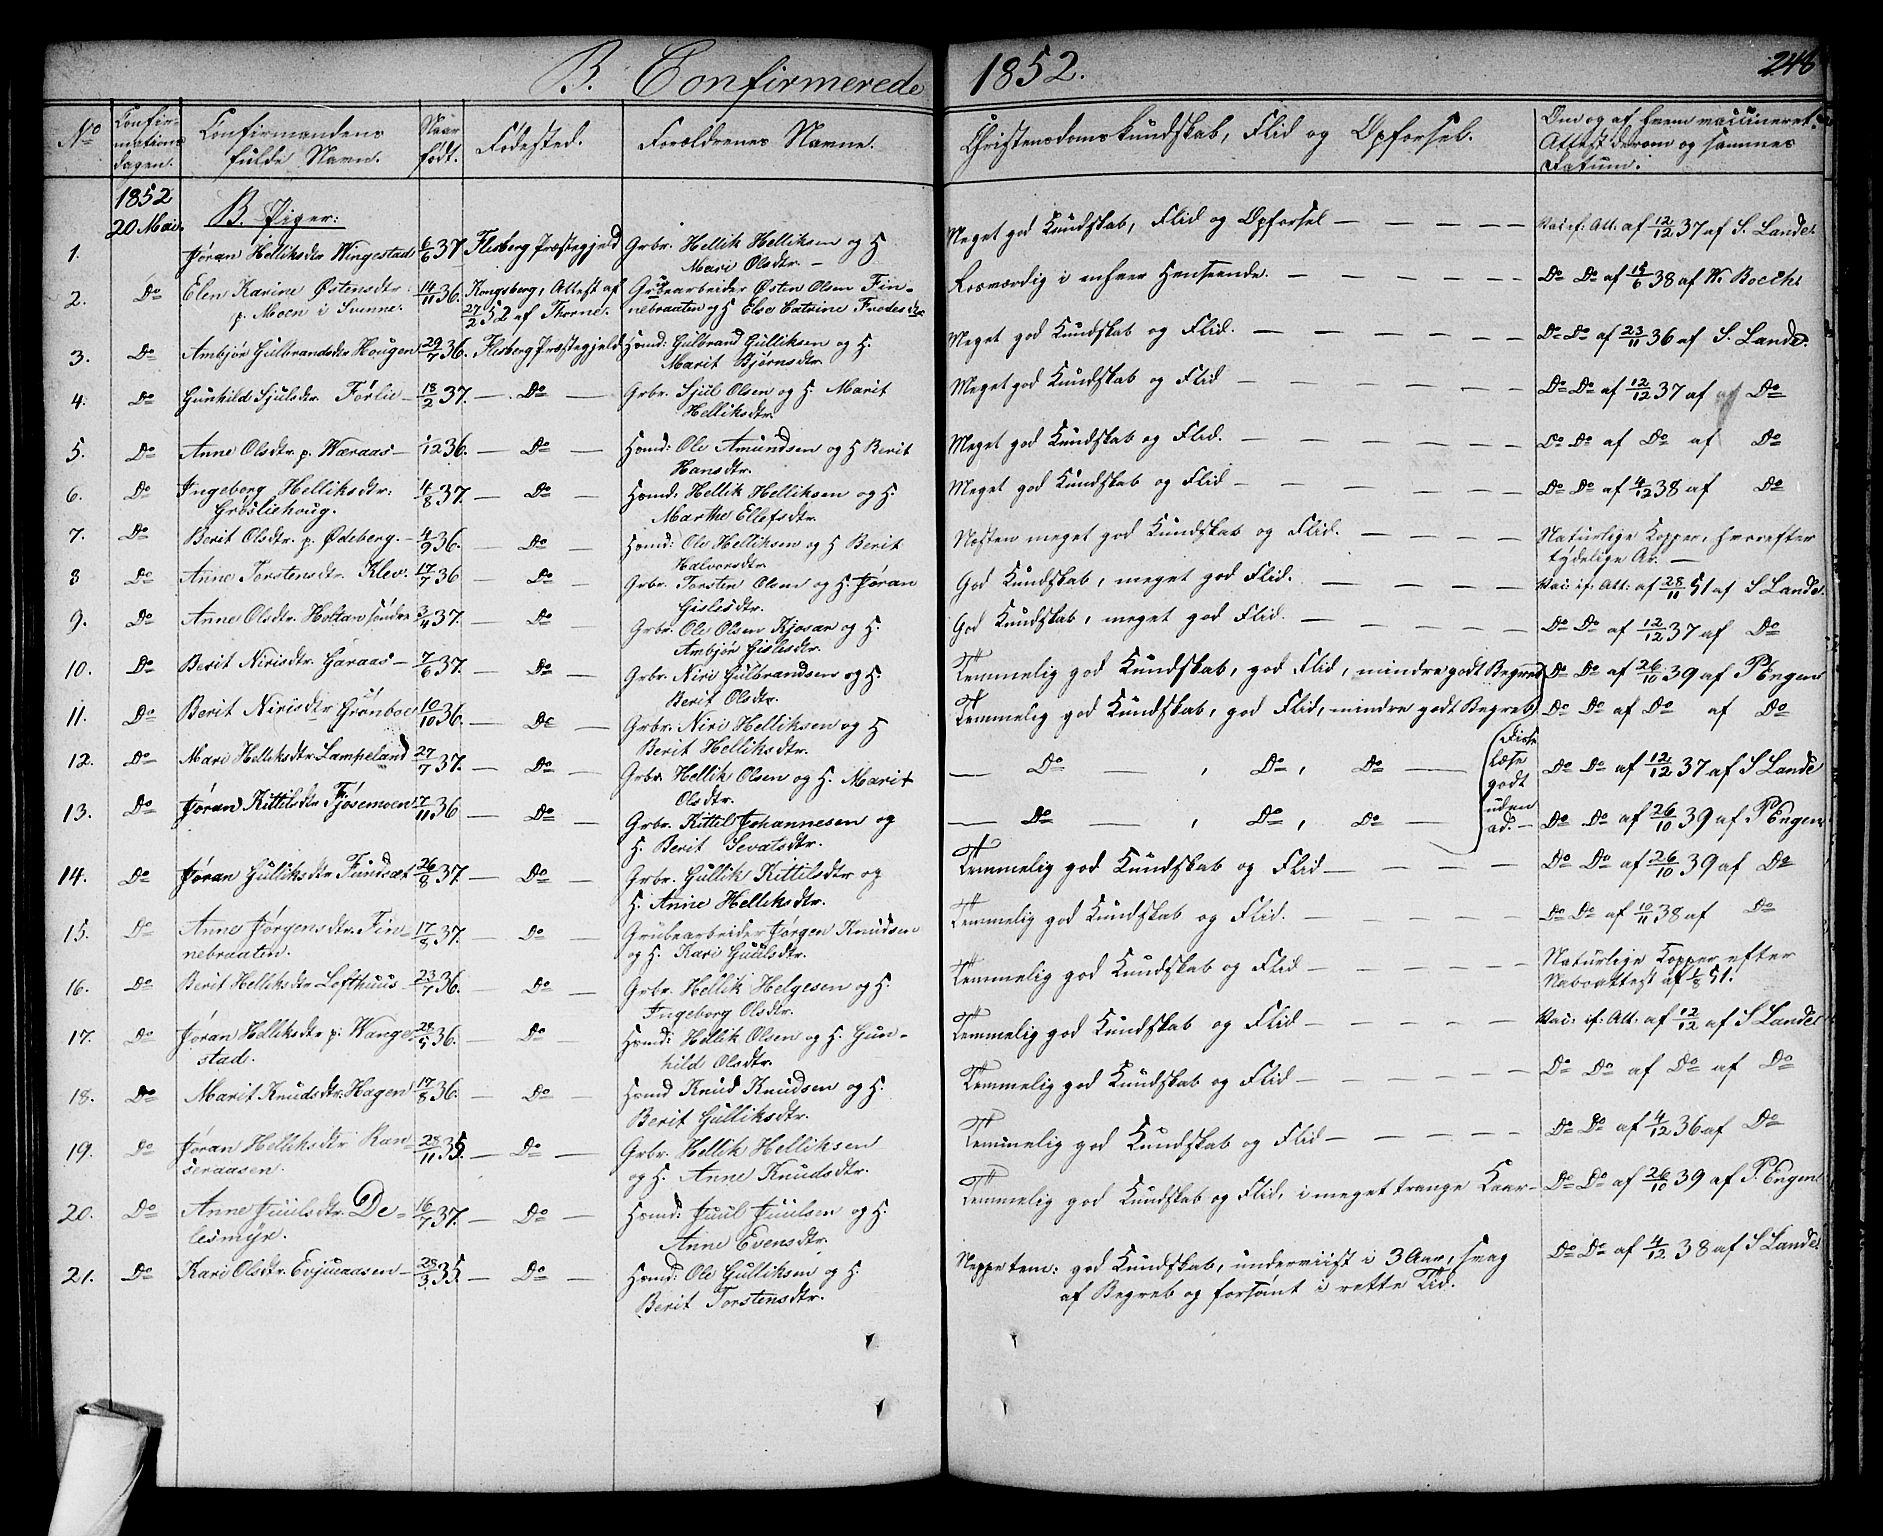 B. Confirmerede 1852. 248
No Confirmationsdagen. Confirmandens fulde Navn. Naar født. Fødested. Forældrenes Navne. Christendomskundskab, Flid og Opførsel. Om og af hvem vaccineret. Attest derom og sammes Datum.
1852
20 Mai. B. Piger:
1. Jøran Helliksdtr Wingestad 6/6 37 Flesberg Præstegjeld Grbr. Hellik Helliksen og H. Meget god Kundskab, Flid og Opførsel — Vac: if: Att. af 12/12 37 af S. Lande.
Mari Olsdtr. —
2. Do Elen Karine Østensdtr. 14/11 36. Kongsberg, Attest af Grubearbeider Østen Olsen Fin- Rosværdig i enhver Henseende. — Do Do af 15/6 38 af W. Boeck.
p. Moen i Svenne. 27/2 52 af Thorne. nebraaten og H Else Catrine Frodesdtr
3. Do Ambjør Gulbrandsdtr Hougen 29/7 36. Flesberg Præstegjeld Hsmd: Gulbrand Gulliksen og H. Meget god Kundskab og Flid. — Do Do af 23/11 36 af S. Lande.
Marit Bjørnsdtr.
4. Do Gunhild Sjulsdtr. Førlie — 18/2 37. — Do — Grbr. Sjul Olsen og H. Marit Meget god Kundskab og Flid — Do Do af 12/12 37 af Do
Helliksdtr.
5. Do Anne Olsdtr. p. Wæraas — 1/12 36. — Do — Hsmd: Ole Amundsen og H Berit Meget god Kundskab og Flid. — Do Do af Do af Do
Hansdtr.
6. Do Ingeborg Helliksdtr: 4/8 37. — Do — Hsmd: Hellik Helliksen og H. Meget god Kundskab og Flid — Do Do af 4/12 38 af Do
Grøsliehoug. Marthe Ellefsdtr.
7. Do Berit Olsdtr. p. Ødeberg. — 4/9 36. — Do — Hsmd: Ole Helliksen og H Berit Næsten meget god Kundskab og Flid. — Naturlige Kopper, hvorefter
Halvorsdtr. tydelige Ar. —
8 Do Anne Torstensdtr. Klev. 17/7 36 — Do — Grbr. Torsten Olsen og H. Jøran God Kundskab, meget god Flid. — Vac: if: Att: af 28/11 51 af S Lande.
Gislesdtr.
9. Do Anne Olsdtr. Holtan søndre 3/4 37. — Do Grbr. Ole Olsen Kjosar og H. God Kundskab, meget god Flid. — Do Do af 12/12 37 af Do
Ambjør Gislesdtr.
10. Do Berit Nirisdtr. Garaas — 7/6 37. — Do — Grbr. Niri Gulbrandsen og H. Temmelig god Kundskab, god Flid, mindre godt Begreb Do Do af 26/10 39 af P Engen
Berit Olsdtr.
11. Do Berit Nirisdtr Grønboe 10/10 36. — Do — Grbr. Niri Helliksen og H Temmelig god Kundskab, god Flid, mindre godt Begreb Do Do af Do af Do
Berit Helliksdtr.
12. Do Mari Helliksdtr Lampeland 27/7 37. — Do — Grbr. Hellik Olsen og H. Marit — Do — , Do, Do — Disse læse godt uden ad. — Do Do af 12/12 37 af S Lande
Olsdtr.
13. Do Jøran Kittilsdtr. Fjøsemoen 7/11 36 — Do — Grbr. Kittel Johannesen og — Do — , Do, Do — Do Do af 26/10 39 af P Engen
H. Berit Sevatsdtr.
14. Do Jøran Gulliksdtr Fundsæt 26/8 37. — Do — Grbr. Gullik Kittilsdtr og Temmelig god Kundskab og Flid — Do Do af 26/10 39 af Do
H. Anne Helliksdtr.
15. Do Anne Jørgensdtr. Fin- 17/8 37. — Do — Grubearbeider Jørgen Knudsen Temmelig god Kundskab og Flid. — Do Do af 10/11 38 af Do
nebraaten. og H. Kari Guulsdtr.
16. Do Berit Helliksdtr Lofthuus — 23/7 36. — Do — Grbr. Hellik Helgesen og H. Temmelig god Kundskab og Flid — Naturlige Kopper efter
Ingeborg Olsdtr. Naboattest af 1/8 51.
17. Do Jøran Helliksdtr p. Wange- 28/5 36. — Do Hsmd: Hellik Olsen og H. Gun- Temmelig god Kundskab og Flid — Vac: if: Att: af 12/12 af S Lande
stad. hild Olsdtr.
18. Do Marit Knudsdtr. Hagen 17/8 36. — Do — Hsmd Knud Knudsen og H. Temmelig god Kundskab og Flid — Do Do af Do af Do
Berit Gulliksdtr.
19. Do Jøran Helliksdtr Ran- 28/11 35. — Do — Grbr. Hellik Helliksen Temmelig god Kundskab og Flid — Do Do af 4/12 36 af Do
seraasen. og H. Anne Knudsdtr.
20. Do Anne Juulsdtr. De- 16/7 37. — Do — Hsmd: Juul Juulsen og H. Temmelig god Kundskab og Flid, i meget trange Kaar — Do Do af 26/10 39 af P. Engen
lesmyr. Anne Evensdtr.
21. Do Kari Olsdtr. Evjuaasen — 28/3 35. — Do — Hsmd: Ole Gulliksen og H. Neppe tem: god Kundskab, underviist i 3 Aar, svag Do Do af 4/12 38 af S Lande.
Berit Torstensdtr. af Begreb og forsømt i rette Tid.